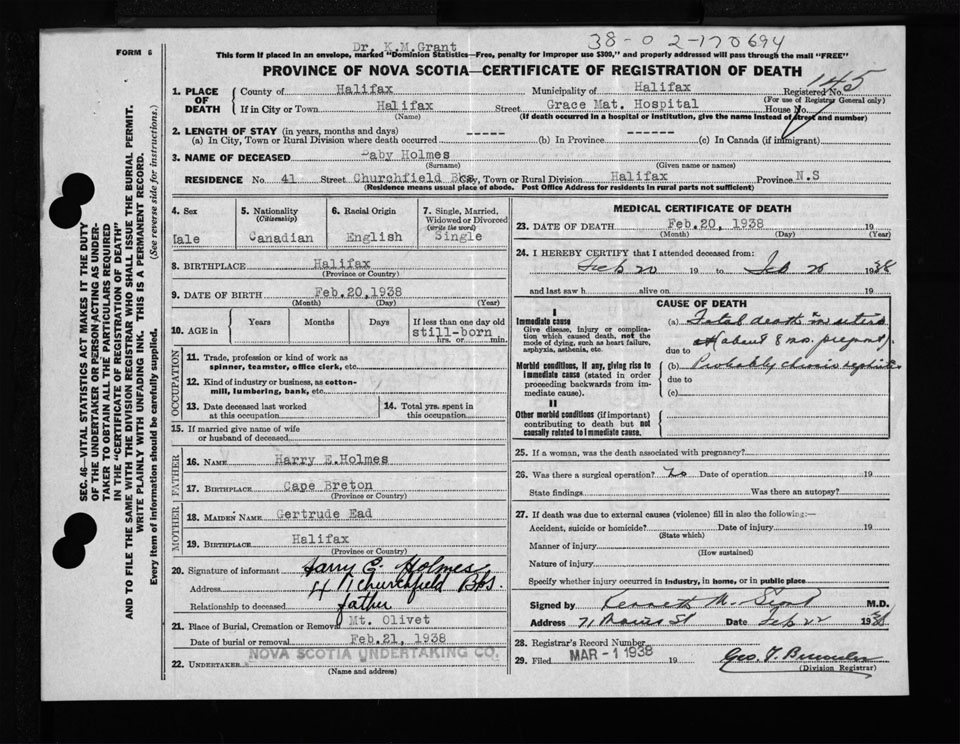 38-02-170694
Dr. K.M.Grant
FORM 6
This form if placed in an envelope, marked "Dominion Statistics—Free, penalty for improper use $300," and properly addressed will pass through the mail "FREE"
PROVINCE OF NOVA SCOTIA—CERTIFICATE OF REGISTRATION OF DEATH
145
1. PLACE OF DEATH
County of Halifax Municipality of Halifax Registered No.
(For use of Registrar General only)
If in City or Town Halifax Street Grace Mat. Hospital House No.
(Name) (If death occurred in a hospital or institution, give the name instead of street and number)
2. LENGTH OF STAY (in years, months and days) ----- ------
(a) In City, Town or Rural Division where death occurred (b) In Province (c) In Canada (if immigrant)
3. NAME OF DECEASED Baby Holmes
(Surname) (Given name or names)
RESIDENCE No. 41 Street Churchfield Bks. City, Town or Rural Division Halifax Province N.S
(Residence means usual place of abode. Post Office Address for residents in rural parts not sufficient)
4. Sex 5. Nationality (Citizenship) 6. Racial Origin 7. Single, Married, Widowed or Divorced (write the word)
Male Canadian English Single
8. BIRTHPLACE Halifax
(Province or Country)
9. DATE OF BIRTH Feb.20,1938
(Month) (Day) (Year)
10. AGE in Years Months Days If less than one day old
still-born
hrs. or min.
OCCUPATION
11. Trade, profession or kind of work as
spinner, teamster, office clerk, etc.
12. Kind of industry or business, as cotton-
mill, lumbering, bank, etc.
13. Date deceased last worked at this occupation 14. Total yrs. spent in this occupation
15. If married give name of wife
or husband of deceased
FATHER
16. NAME Harry E.Holmes
17. BIRTHPLACE Cape Breton
(Province or Country)
MOTHER
18. MAIDEN NAME Gertrude Ead
19. BIRTHPLACE Halifax
(Province or Country)
20. Signature of informant Harry E. Holmes
Address 41 Churchfield Bks.
Relationship to deceased father
21. Place of Burial, Cremation or Removal Mt. Olivet
Date of burial or removal Feb.21, 1938
22. UNDERTAKER NOVA SCOTIA UNDERTAKING CO.
(Name and address)
MEDICAL CERTIFICATE OF DEATH
23. DATE OF DEATH Feb.20, 1938 19
(Month) (Day) (Year)
24. I HEREBY CERTIFY that I attended deceased from:
Feb 20 19 to Feb 20 1938
and last saw h alive on 19
CAUSE OF DEATH
I
Immediate cause
Give disease, injury or complica-
tion which caused death, not the
mode of dying, such as heart failure,
asphyxia, asthenia, etc.
(a) Fotal death in utero
at about 8 mo.
due to
Morbid conditions, if any, giving rise to
immediate cause (stated in order
proceeding backwards from im-
mediate cause).
(b) Probably chronic nephritis
due to
(c)
II
Other morbid conditions (if important)
contributing to death but not
causally related to immediate cause.
25. If a woman, was the death associated with pregnancy?
26. Was there a surgical operation? No Date of operation 19
State findings Was there an autopsy?
27. If death was due to external causes (violence) fill in also the following:—
Accident, suicide or homicide? Date of injury 19
(State which)
Manner of injury
(How sustained)
Nature of injury
Specify whether injury occurred in industry, in home, or in public place
Signed by Kenneth M. Grant M.D.
Address 71 Morris St Date Feb 22 1938
28. Registrar's Record Number
29. Filed MAR -1 1938 19
(Division Registrar)
SEC. 46—VITAL STATISTICS ACT MAKES IT THE DUTY
OF THE UNDERTAKER OR PERSON ACTING AS UNDER-
TAKER TO OBTAIN ALL THE PARTICULARS REQUIRED
IN THE "CERTIFICATE OF REGISTRATION OF DEATH"
AND TO FILE THE SAME WITH THE DIVISION REGISTRAR WHO SHALL ISSUE THE BURIAL PERMIT.
WRITE PLAINLY WITH UNFADING INK. THIS IS A PERMANENT RECORD.
Every item of Information should be carefully supplied. (See reverse side for instructions.)